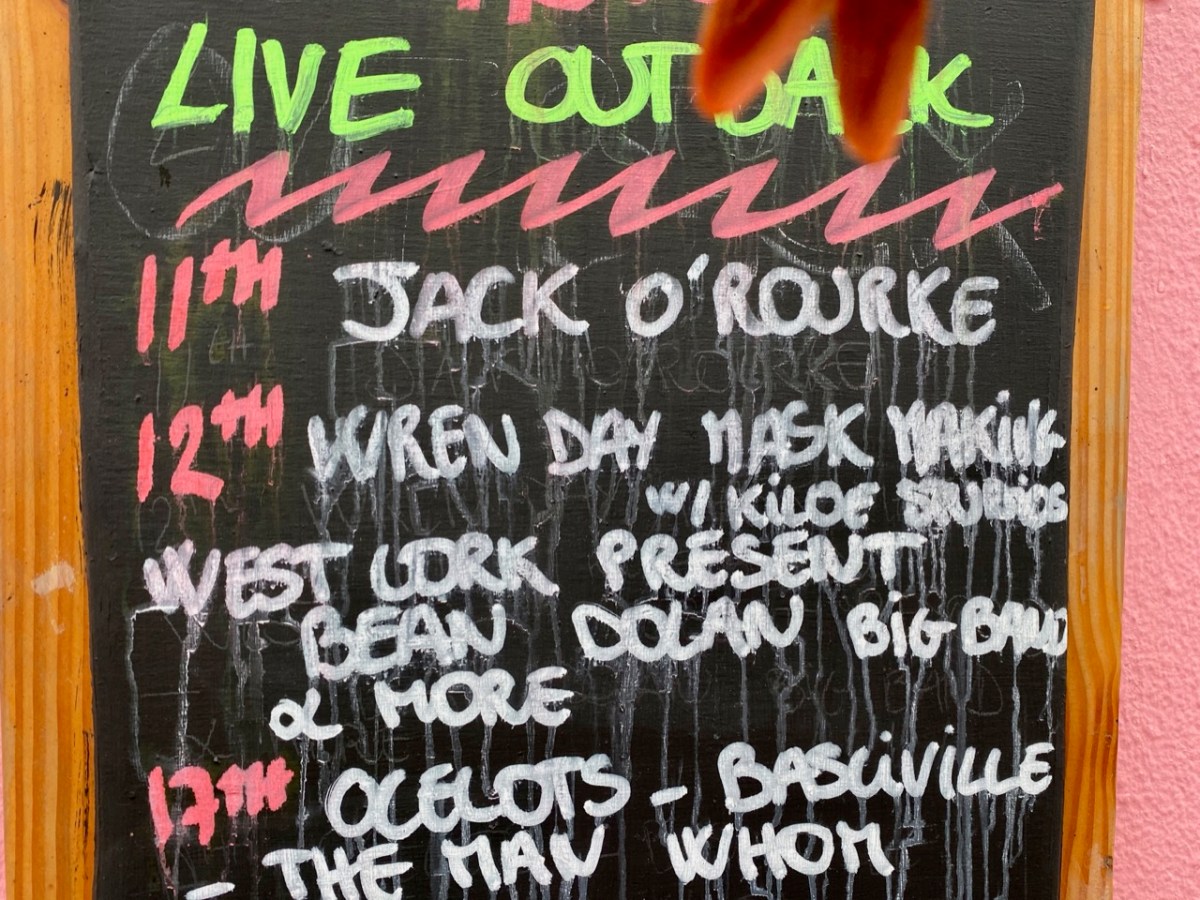 LIVE OUTBACK
11TH JACK O'ROURKE
12TH WREN DAY MASK MAKiNG
W/ KiLOE STUDiOS
WEST CORK PRESENT
BEAN DOLAN BiG BAND
& MORE
17TH OCELOTS - BASCiVILLE
- THE MAN WHOM